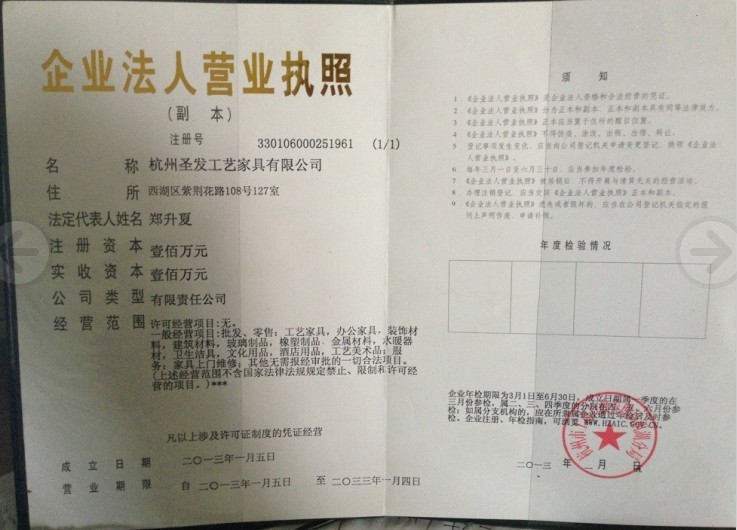 企业法人营业执照
(副 本)
注册号 330106000251961 (1/1)
名称 杭州圣发工艺家具有限公司
住所 西湖区紫荆花路108号127室
法定代表人姓名 郑升夏
注册资本 壹佰万元
实收资本 壹佰万元
公司类型 有限责任公司
经营范围 许可经营项目:无。
一般经营项目:批发、零售:工艺家具,办公家具,装饰材
料,建筑材料,玻璃制品,橡塑制品,金属材料,水暖器
材,卫生洁具,文化用品,酒店用品,工艺美术品;服
务:家具上门维修;其他无需报经审批的一切合法项目。
(上述经营范围不含国家法律法规规定禁止、限制和许可经
营的项目。)***
凡以上涉及许可证制度的凭证经营
成立日期 二〇一三年一月五日
营业期限 自 二〇一三年一月五日 至 二〇三三年一月四日
须知
1 《企业法人营业执照》是企业法人资格和合法经营的凭证。
2 《企业法人营业执照》分为正本和副本,正本和副本具有同等法律效力。
3 《企业法人营业执照》正本应当置于住所的醒目位置。
4 《企业法人营业执照》不得伪造、涂改、出租、出借、转让。
5 登记事项发生变化,应当向公司登记机关申请变更登记,换领《企业法
人营业执照》。
6 每年三月一日至六月三十日,应当参加年度检验。
7 《企业法人营业执照》被吊销后,不得开展与清算无关的经营活动。
8 办理注销登记,应当交回《企业法人营业执照》正本和副本。
9 《企业法人营业执照》遗失或者毁坏的,应当在公司登记机关指定的报
刊上声明作废,申请补领。
年度检验情况
企业年检期限为3月1日至6月30日。成立日期属一季度的在
三月份参检,属二、三、四季度的分别在四、五、六月份参
检;如属分支机构的,应在所属企业通过年检后及时参
检。企业注册、年检指南,可浏览 WWW.HZAIC.GOV.CN。
二〇一三 年 一月 日